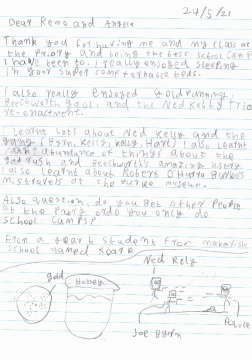 24/5/21
Dear Remo and Angela
Thank you for having me and my class at
the Priory and being the best school camp
I have been to. I really enjoyed sleeping
in your super comfortable beds.
I also really enjoyed Gold Panning,
Beechworth gaol, and the Ned Kelly Trial
re-enactment.
I learnt lots about Ned Kelly and the
gang (Byrn, Kelly, Kelly, Hart) I also learnt
abundance of things about the
gold rush and Beechworth's amazing history
I also learnt about Robert O'Hara Burke's
mistravels at the Burke museum.
Also question, do you get other people
at the Priory or do you only do
school camps?
From a year 6 student from
school named
Ned Kely
gold
Honey
Police
Joe Byrn